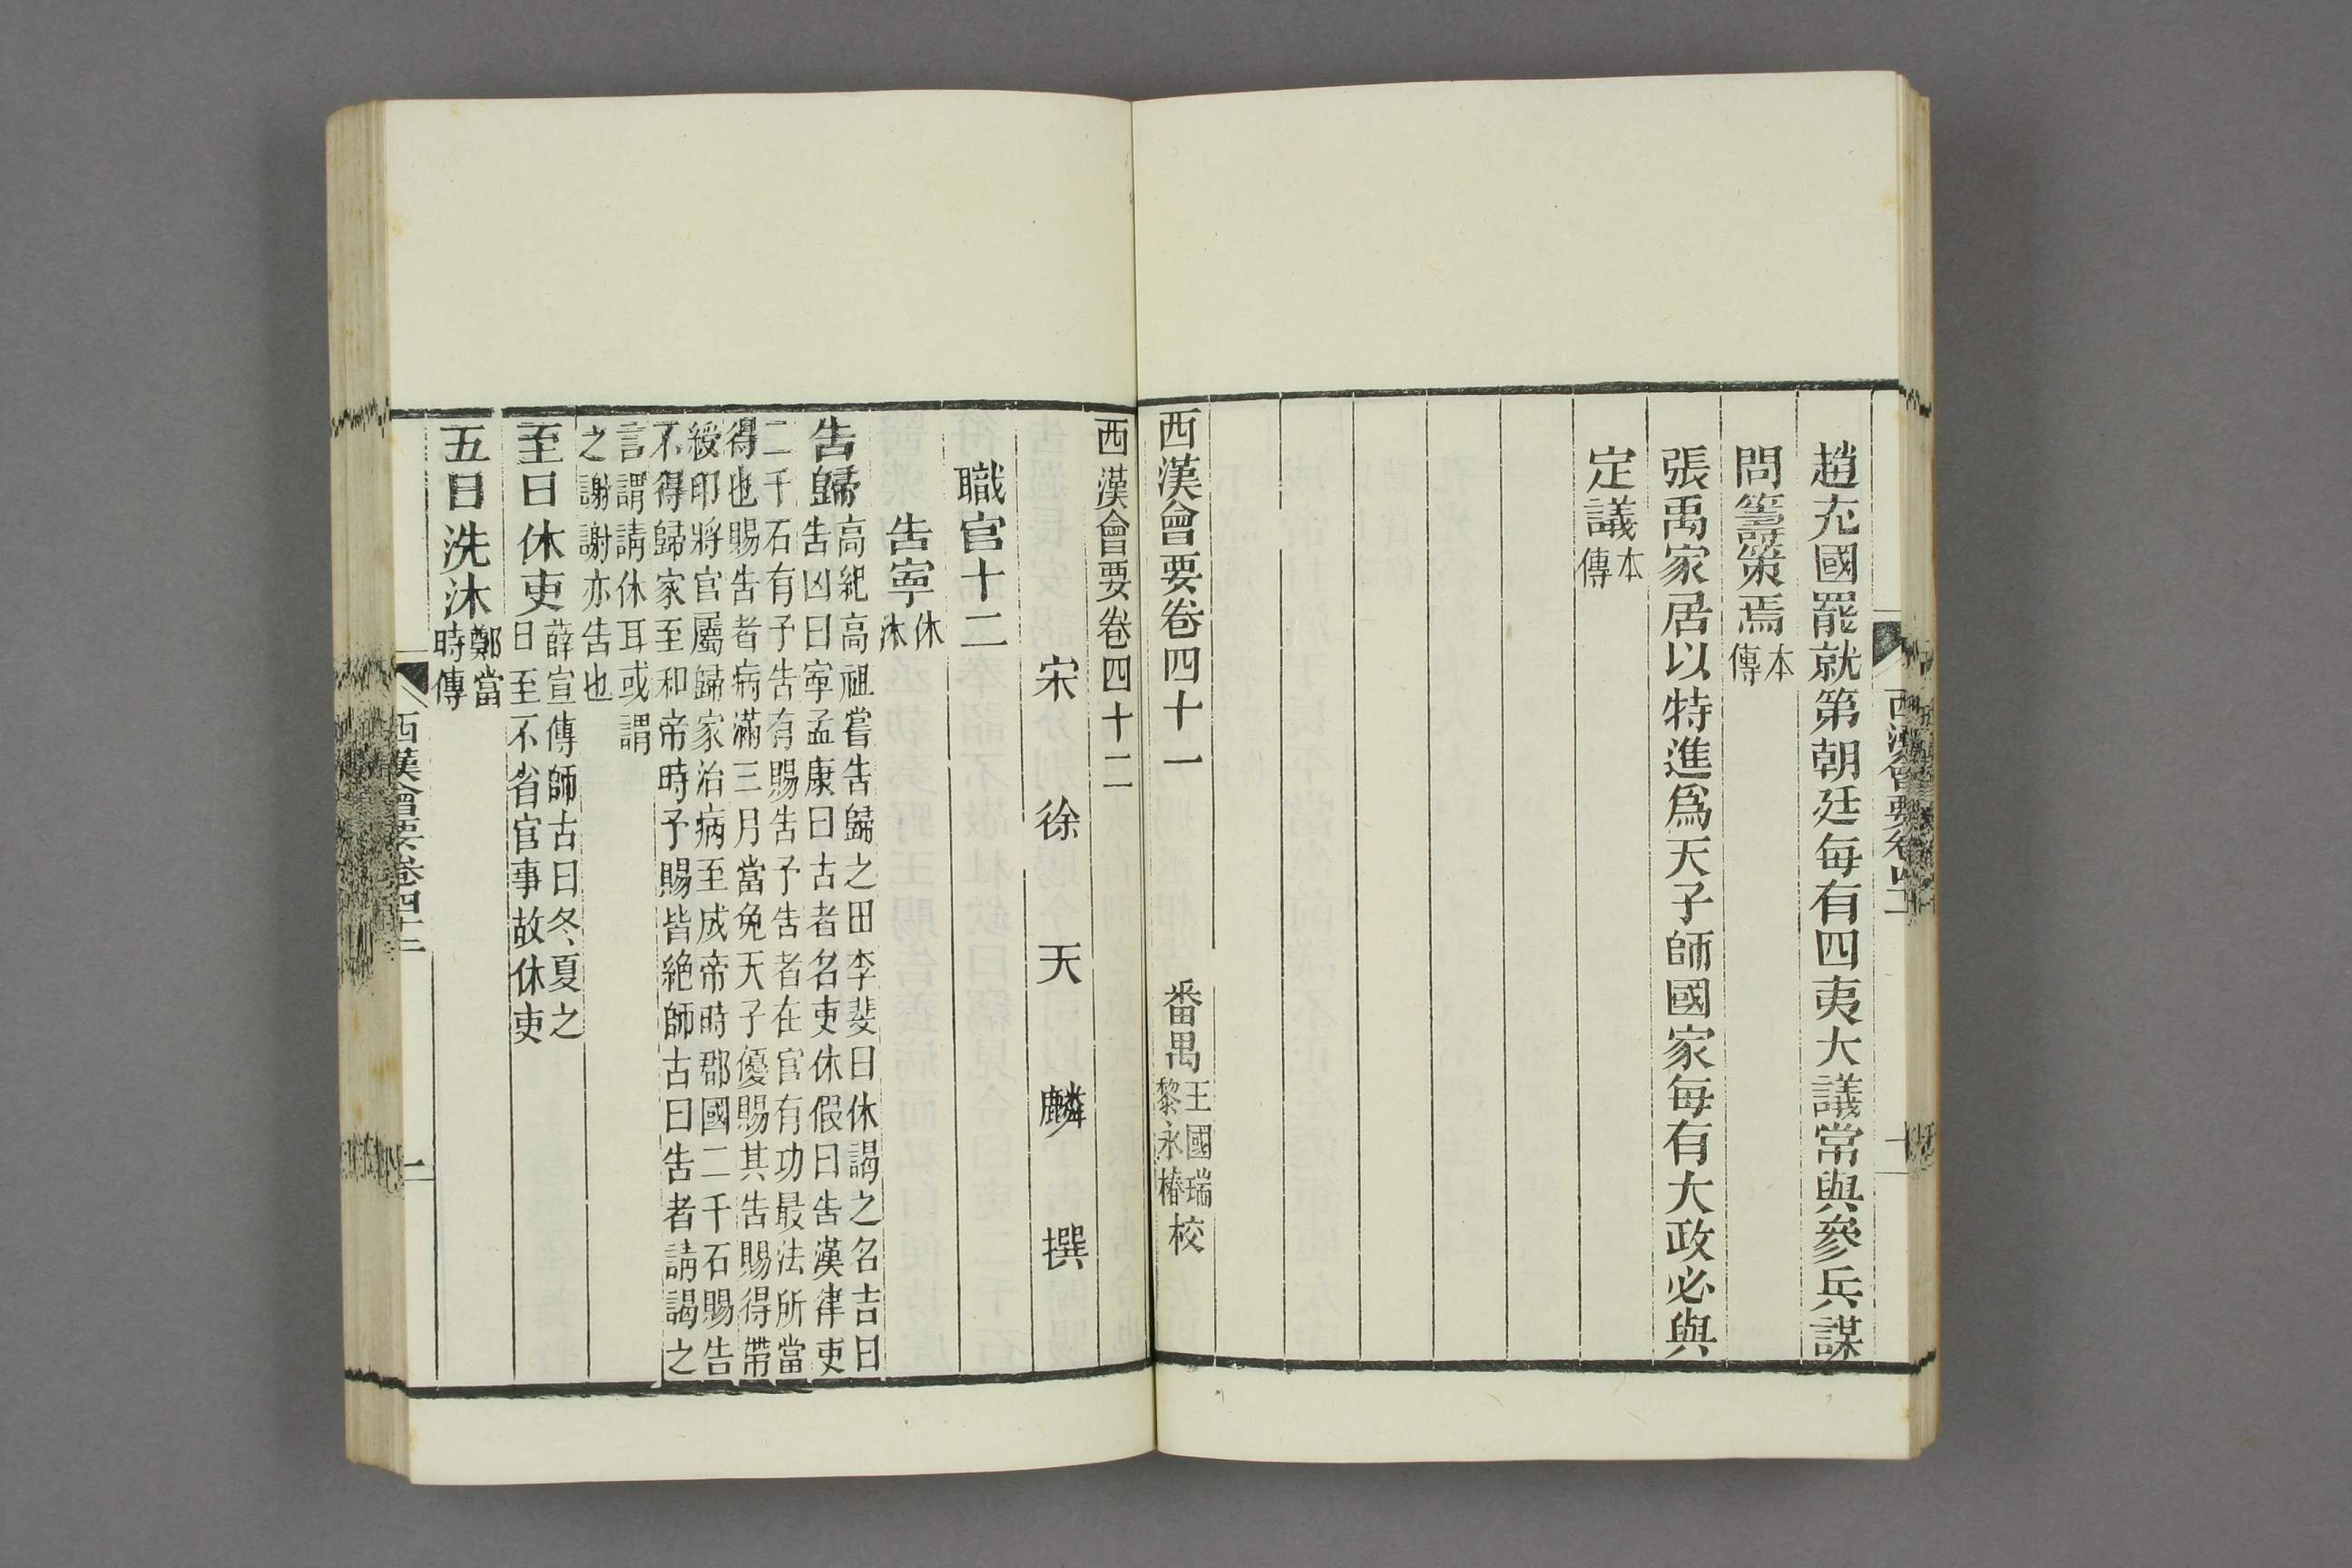 趙充國罷就第朝廷每有四夷大議常與參兵謀
問籌策焉本傳
張禹家居以特進爲天子師國家每有大政必與
定議本傳
西漢會要卷四十一 番禺王國瑞黎永椿校
西漢會要卷四十二
宋 徐 天 麟 撰
職官十二
告寧休沐
告歸高紀高祖嘗告歸之田李斐曰休謁之名吉曰
告凶曰寧孟康曰古者名吏休假曰告漢律吏
二千石有予告有賜告予告者在官有功最法所當
得也賜告者病滿三月當免天子優賜其告賜得帶
綬印將官屬歸家治病至成帝時郡國二千石賜告
不得歸家至和帝時予賜皆絶師古曰告者請謁之
言謂請休耳或謂
之謝謝亦告也
至日休吏薛宣傳師古曰冬夏之
日至不省官事故休吏
五日洗沐鄭當
時傳
西漢會要卷四十二
一